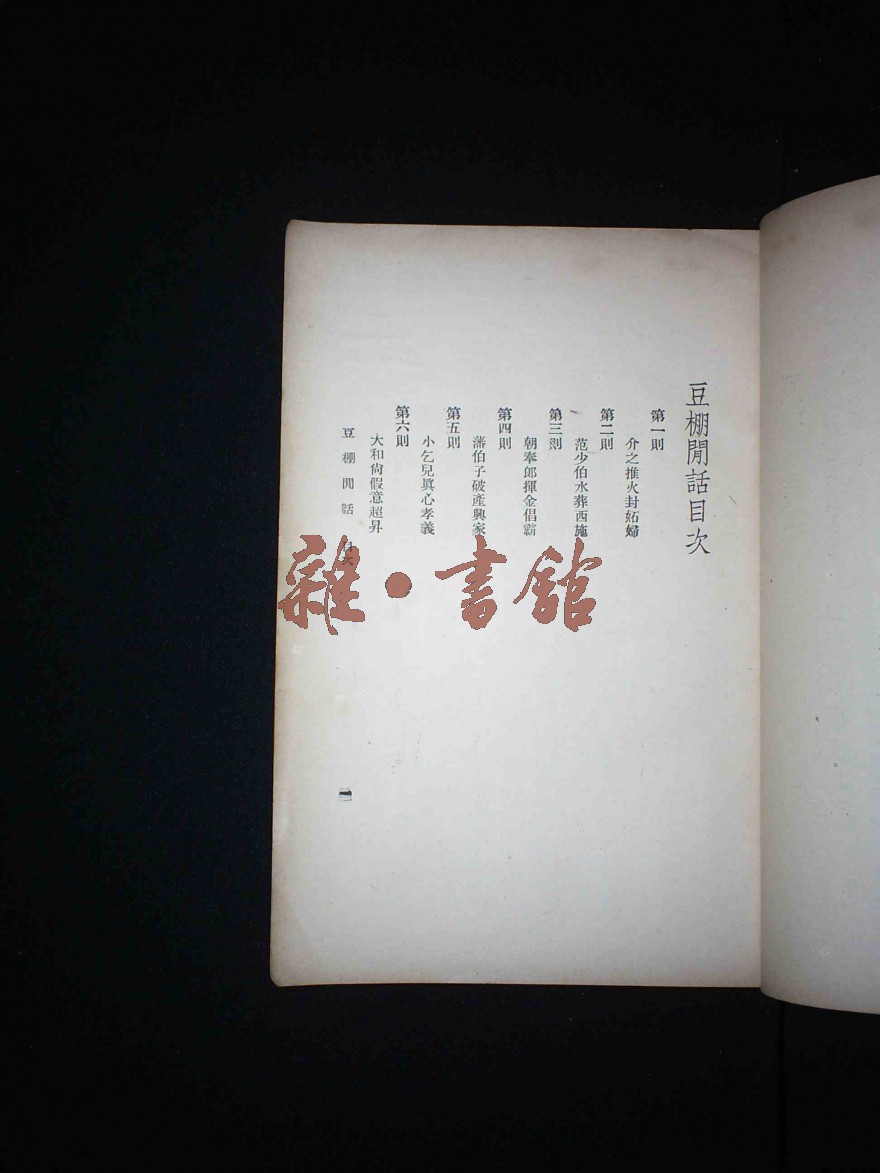 豆棚閒話目次
第一則
介之推火封妬婦
第二則
范少伯水葬西施
第三則
朝奉郎揮金倡霸
第四則
藩伯子破產興家
第五則
小乞兒真心孝義
第六則
大和尙假意超昇
豆棚閒話 目次
一
雜•書館